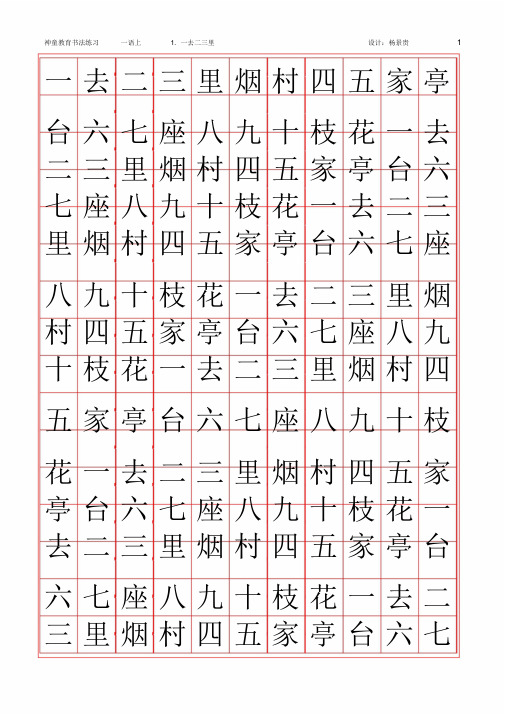 神童教育书法练习 一语上 1. 一去二三里 设计：杨景贵 1
一去二三里烟村四五家亭
台六七座八九十枝花一去
二三里烟村四五家亭台六
七座八九十枝花一去二三
里烟村四五家亭台六七座
八九十枝花一去二三里烟
村四五家亭台六七座八九
十枝花一去二三里烟村四
五家亭台六七座八九十枝
花一去二三里烟村四五家
亭台六七座八九十枝花一
去二三里烟村四五家亭台
六七座八九十枝花一去二
三里烟村四五家亭台六七